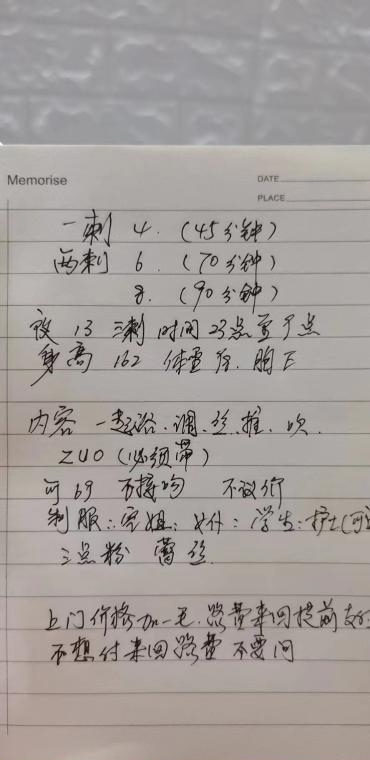 Memorise
DATE
PLACE
一刺 4. (45分钟)
两刺 6. (70分钟)
8. (90分钟)
夜 13 三刺 时间 23点至7点
身高 162 体重 胸E
内容 一起浴. 调. 丝推. 吹.
ZUO (必须带)
可69 不接吻 不议价
制服: 空姐: 女仆: 学生: 护士(可
三点粉 蕾丝
上门价格加一毛. 路费来回提前支
不想付来回路费 不要问